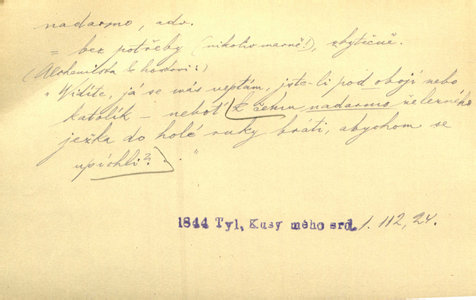 nadarmo, adv.
= bez potřeby (nikoliv marně!), zbytečně.
(Alchemista k hostovi:)
„Vidíte, já se vás neptám, jste-li pod obojí nebo
katolík – neboť (k čemu nadarmo železného
ježka do holé ruky bráti, abychom se
upíchli?) . "
1844 Tyl, Kusy mého srd. 1. 112, 24.